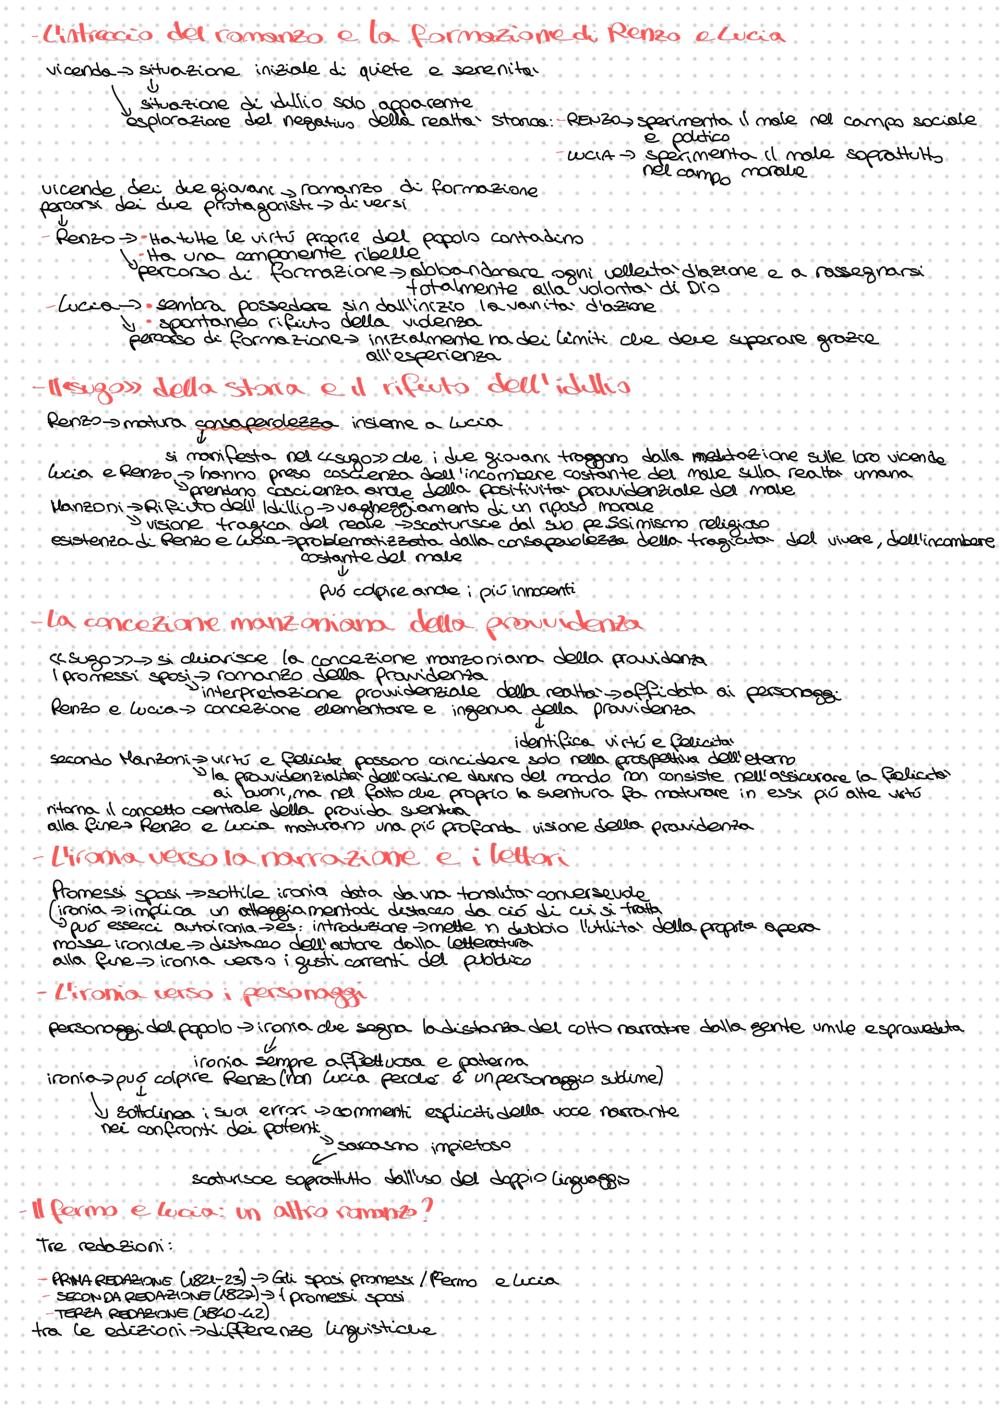 - L'intreccio del romanzo e la formazione di Renzo e Lucia
vicenda → situazione iniziale di quiete e serenità
↓
situazione di idillio solo apparente
esplorazione del negativo della realtà storica: - RENZO → sperimenta il male nel campo sociale
e politico
- LUCIA → sperimenta il male soprattutto
nel campo morale
vicende dei due giovani → romanzo di formazione
percorsi dei due protagonisti → diversi
↓
- Renzo → • Ha tutte le virtú proprie del popolo contadino
• Ha una componente ribelle
percorso di formazione → abbandonare ogni velleità d'azione e a rassegnarsi
totalmente alla volontà di Dio
- Lucia → • sembra possedere sin dall'inizio la vanità d'azione
↓ • spontaneo rifiuto della violenza
percorso di formazione → inizialmente ha dei limiti che deve superare grazie
all'esperienza
- Il «sugo» della storia e il rifiuto dell'idillio
Renzo → matura consapevolezza insieme a Lucia
↓
si manifesta nel «sugo» che i due giovani traggono dalla meditazione sulle loro vicende
Lucia e Renzo → hanno preso coscienza dell'incombere costante del male sulla realtà umana
↘ prendono coscienza anche della positività provvidenziale del male
Manzoni → Rifiuto dell'Idillio → vagheggiamento di un riposo morale
↘ visione tragica del reale → scaturisce dal suo pessimismo religioso
esistenza di Renzo e Lucia → problematizzata dalla consapevolezza della tragicità del vivere, dell'incombere
costante del male
↓
puó colpire anche i piú innocenti
- La concezione manzoniana della provvidenza
«sugo» → si chiarisce la concezione manzoniana della provvidenza
I promessi sposi → romanzo della Provvidenza
↘ interpretazione provvidenziale della realtà → affidata ai personaggi
Renzo e Lucia → concezione elementare e ingenua della provvidenza
↓
identifica virtú e felicità
secondo Manzoni → virtú e felicità possono coincidere solo nella prospettiva dell'eterno
↘ la provvidenzialità dell'ordine divino del mondo non consiste nell'assicurare la felicità
ai buoni, ma nel fatto che proprio la sventura fa maturare in essi piú alte virtú
ritorna il concetto centrale della provida sventura
alla fine → Renzo e Lucia maturano una piú profonda visione della provvidenza
- L'ironia verso la narrazione e i lettori
Promessi sposi → sottile ironia data da una tonalità conversevole
(ironia → implica un atteggiamento di distacco da ció di cui si tratta
↘ puó esserci autoironia → es: introduzione → mette in dubbio l'utilità della propria opera
mosse ironiche → distacco dell'autore dalla letteratura
alla fine → ironia verso i gusti correnti del pubblico
- L'ironia verso i personaggi
personaggi del popolo → ironia che segna la distanza del colto narratore dalla gente umile e sprovveduta
↙
ironia sempre affettuosa e paterna
ironia → puó colpire Renzo (non Lucia perché é un personaggio sublime)
↓
↘ sottolinea i suoi errori → commenti espliciti della voce narrante
nei confronti dei potenti
↘ sarcasmo impietoso
↙
scaturisce soprattutto dall'uso del doppio linguaggio
- Il fermo e Lucia: un altro romanzo?
Tre redazioni:
- PRIMA REDAZIONE (1821-23) → Gli sposi promessi / Fermo e Lucia
- SECONDA REDAZIONE (1827) → I promessi sposi
- TERZA REDAZIONE (1840-42)
tra le edizioni → differenze linguistiche